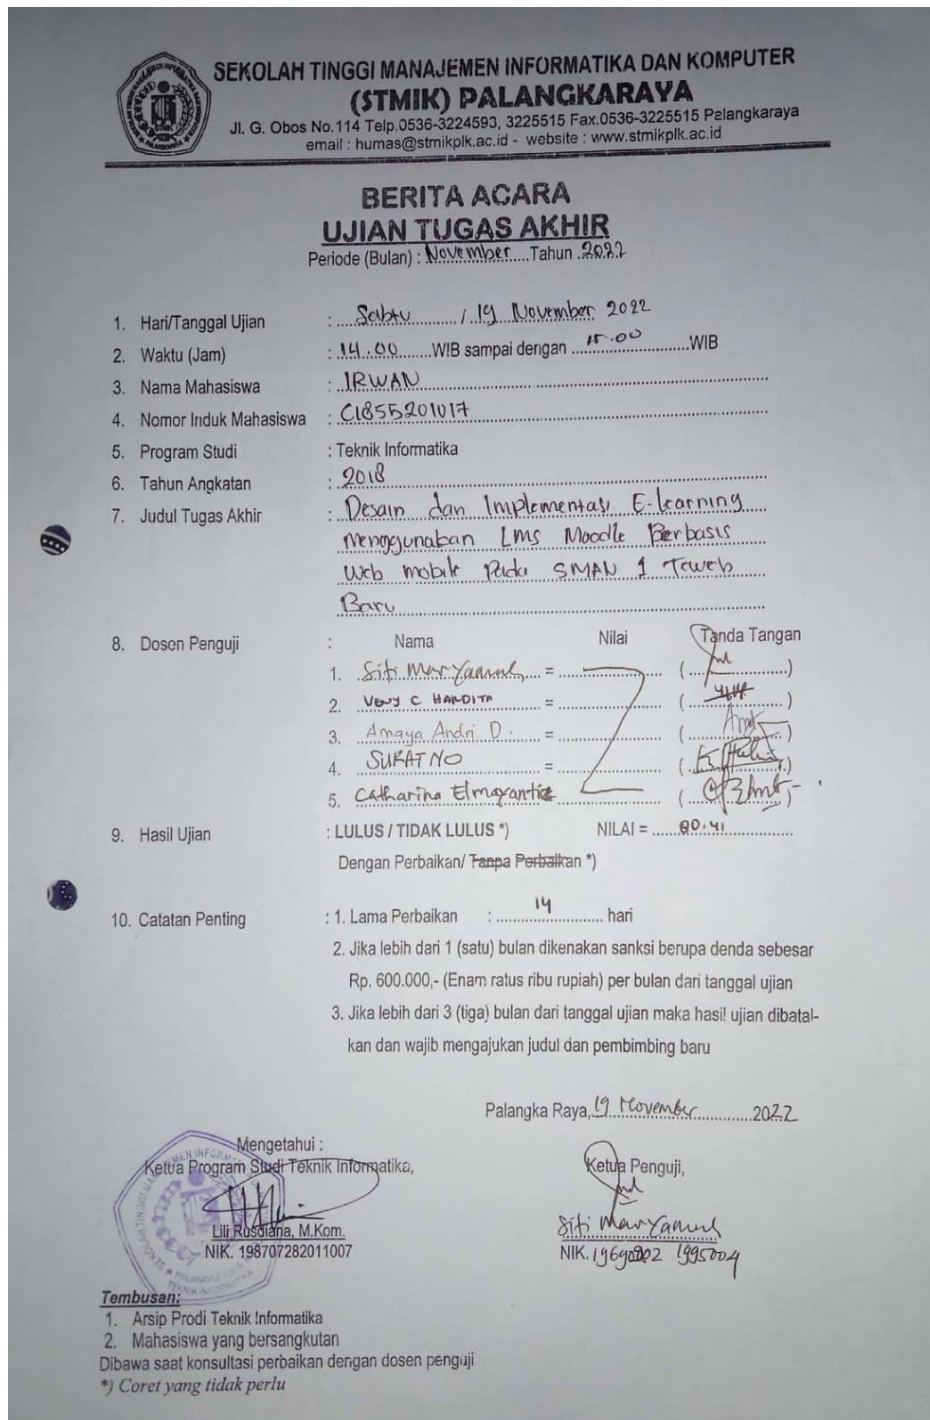 SEKOLAH TINGGI MANAJEMEN INFORMATIKA DAN KOMPUTER
(STMIK) PALANGKARAYA
Jl. G. Obos No.114 Telp.0536-3224593, 3225515 Fax.0536-3225515 Palangkaraya
email : humas@stmikplk.ac.id - website : www.stmikplk.ac.id
BERITA ACARA
UJIAN TUGAS AKHIR
Periode (Bulan) : November Tahun 2022
1. Hari/Tanggal Ujian : Sabtu / 19 November 2022
2. Waktu (Jam) : 14.00 WIB sampai dengan 15.00 WIB
3. Nama Mahasiswa : IRWAN
4. Nomor Induk Mahasiswa : C1855201017
5. Program Studi : Teknik Informatika
6. Tahun Angkatan : 2018
7. Judul Tugas Akhir : Desain dan Implementasi E-learning
Menggunakan Lms Moodle Berbasis
Web mobile Pada SMAN 1 Teweh
Baru
8. Dosen Penguji : Nama Nilai Tanda Tangan
1. Siti Maryamul =
2. Veny C HARDITA =
3. Amaya Andri D. =
4. SURATNO =
5. Catharina Elmayantie
9. Hasil Ujian : LULUS / TIDAK LULUS *) NILAI = 80.41
Dengan Perbaikan/ Tanpa Perbaikan *)
10. Catatan Penting : 1. Lama Perbaikan : 14 hari
2. Jika lebih dari 1 (satu) bulan dikenakan sanksi berupa denda sebesar
Rp. 600.000,- (Enam ratus ribu rupiah) per bulan dari tanggal ujian
3. Jika lebih dari 3 (tiga) bulan dari tanggal ujian maka hasil ujian dibatal-
kan dan wajib mengajukan judul dan pembimbing baru
Palangka Raya, 19 November 2022
Mengetahui :
Ketua Program Studi Teknik Informatika,
Ketua Penguji,
Lili Rusdiana, M.Kom.
NIK. 198707282011007
Siti Maryamul
NIK. 1995004
Tembusan:
1. Arsip Prodi Teknik Informatika
2. Mahasiswa yang bersangkutan
Dibawa saat konsultasi perbaikan dengan dosen penguji
*) Coret yang tidak perlu